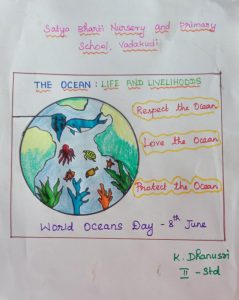 Satya Bharti Nursery and Primary
School, Vadakudi
THE OCEAN : LIFE AND LIVELIHODS
Respect the Ocean
Love the Ocean
Protect the Ocean
World Oceans Day - 8th June
K. Dhanusri
II - Std